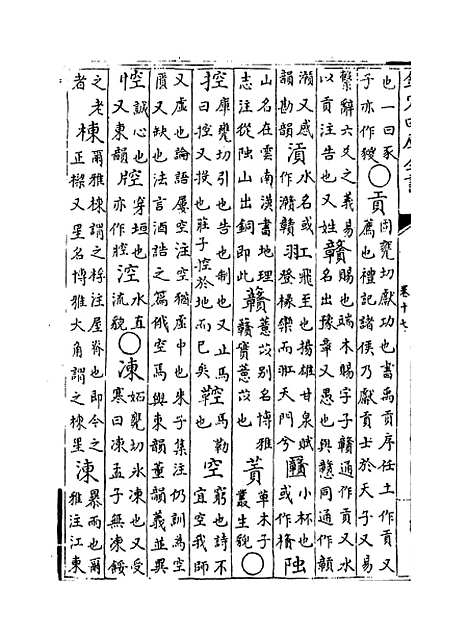 欽定四庫全書
卷十七
也一曰豕子亦作豵○貢岡甕切獻功也書禹貢序任土作貢又薦也禮記諸侯乃獻貢士於天子又易
繫辭六爻之義易以貢注告也又姓贛賜也端木賜字子贛通作貢又水名出豫章又愚也與戇同通作灨
灝又感韻勘韻水名或作灨羾工飛至也揚雄甘泉賦登椽欒而羾天門兮小杯也或作
山名在雲南漢書地理志注從山出銅即此薏苡別名博雅薏苡也草木子叢生貌○
控甕切引也告也制也又止馬曰控又投也莊子控於地而已矣鞚馬勒也空窮也詩不宜空我師
又虛也論語屢空注空猶虛中也朱子集注仍訓為空匱又缺也法言酒誥之篇俄空焉與東韻董韻義並異
悾誠心也又東韻穿垣也亦作腔涳水直流貌○凍甕切冰凍也又受寒曰凍孟子無凍餒
之老者棟爾雅棟謂之桴注屋脊也即今之正樑又星名博雅大角謂之棟星涷暴雨也爾雅注江東